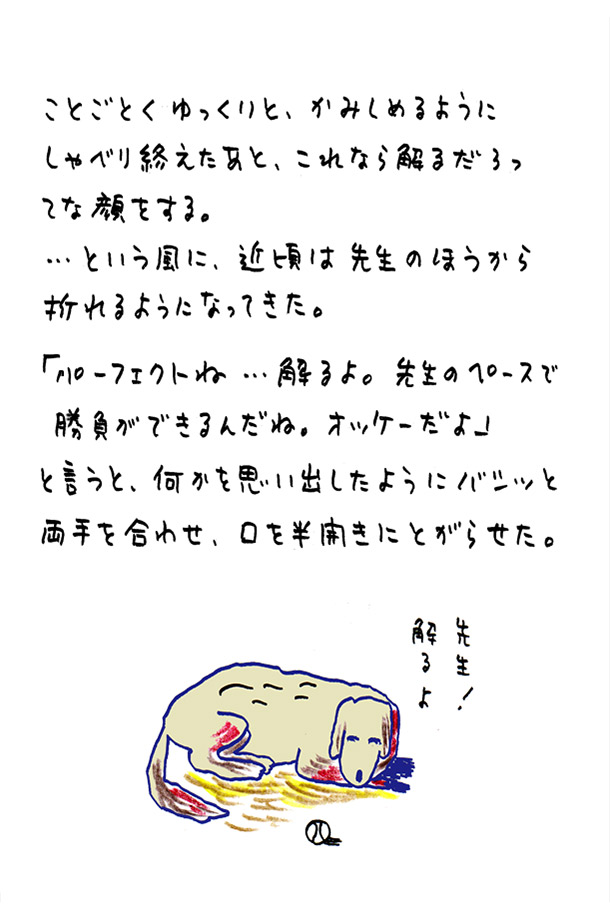 ことごとくゆっくりと、かみしめるように
しゃべり終えたあと、これなら解るだろっ
てな顔をする。
…という風に、近頃は先生のほうから
折れるようになってきた。
「パーフェクトね…解るよ。先生のペースで
勝負ができるんだね。オッケーだよ」
と言うと、何かを思い出したようにバシッと
両手を合わせ、口を半開きにとがらせた。
先生！
解るよ